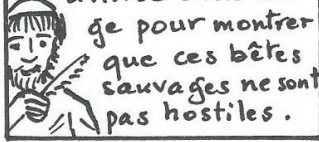 ge pour montrer
que ces bêtes
sauvages ne sont
pas hostiles.